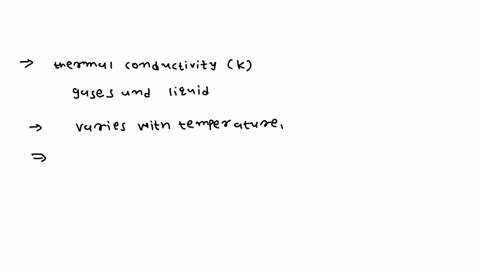 → thermal conductivity (k)
gases und liquid
→ varies with temperature,
⇒